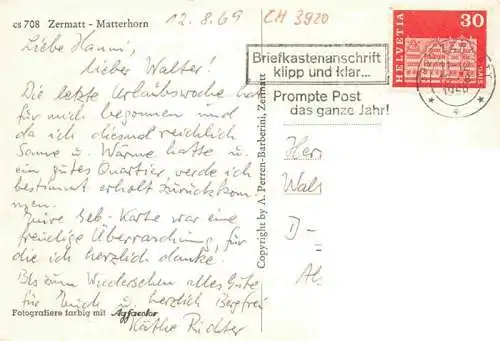 cs 708 Zermatt - Matterhorn
12.8.69
CH 3920
Liebe Hanni,
lieber Walter!
Die letzte Urlaubswoche hat
für mich begonnen und
da ich diesmal reichlich
Sonne u. Wärme hatte u.
ein gutes Quartier, werde ich
bestimmt erholt zurückkom-
men.
Eure Geb.-Karte war eine
freudige Überraschung, für
die ich herzlich danke.
Bis zum Wiedersehen alles Gute
für Euch u. herzlich Bergfrei
Käthe Richter
Fotografiere farbig mit Agfacolor
Copyright by A. Perren-Barberini, Zermatt
Briefkastenanschrift
klipp und klar...
Prompte Post
das ganze Jahr!
HELVETIA
30
Herr
Wal
D-